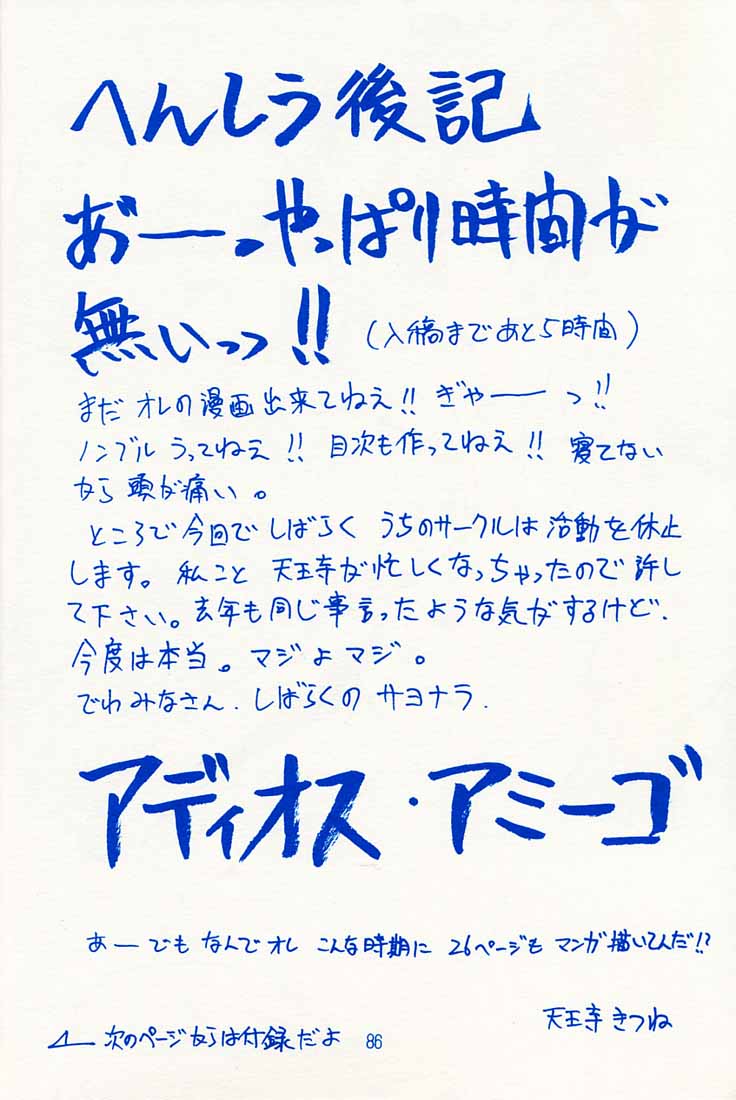 へんしう後記
あ゛ーっやっぱり時間が
無いっっ!!
(入稿まであと5時間)
まだ オレの漫画出来てねえ!! ぎゃーーっ!!
ノンブル うってねえ!! 目次も作ってねえ!! 寝てない
から 頭が痛い。
ところで今回で しばらく うちのサークルは 活動を休止
します。私こと 天王寺が忙しくなっちゃったので 許し
て下さい。去年も同じ事言ったような気がするけど.
今度は本当。マジよ マジ。
でわ みなさん. しばらくの サヨナラ.
アディオス・アミーゴ
あーでも なんで オレ こんな時期に 26ページも マンガ描いてんだ!?
天王寺きつね
次のページからは付録だよ
86